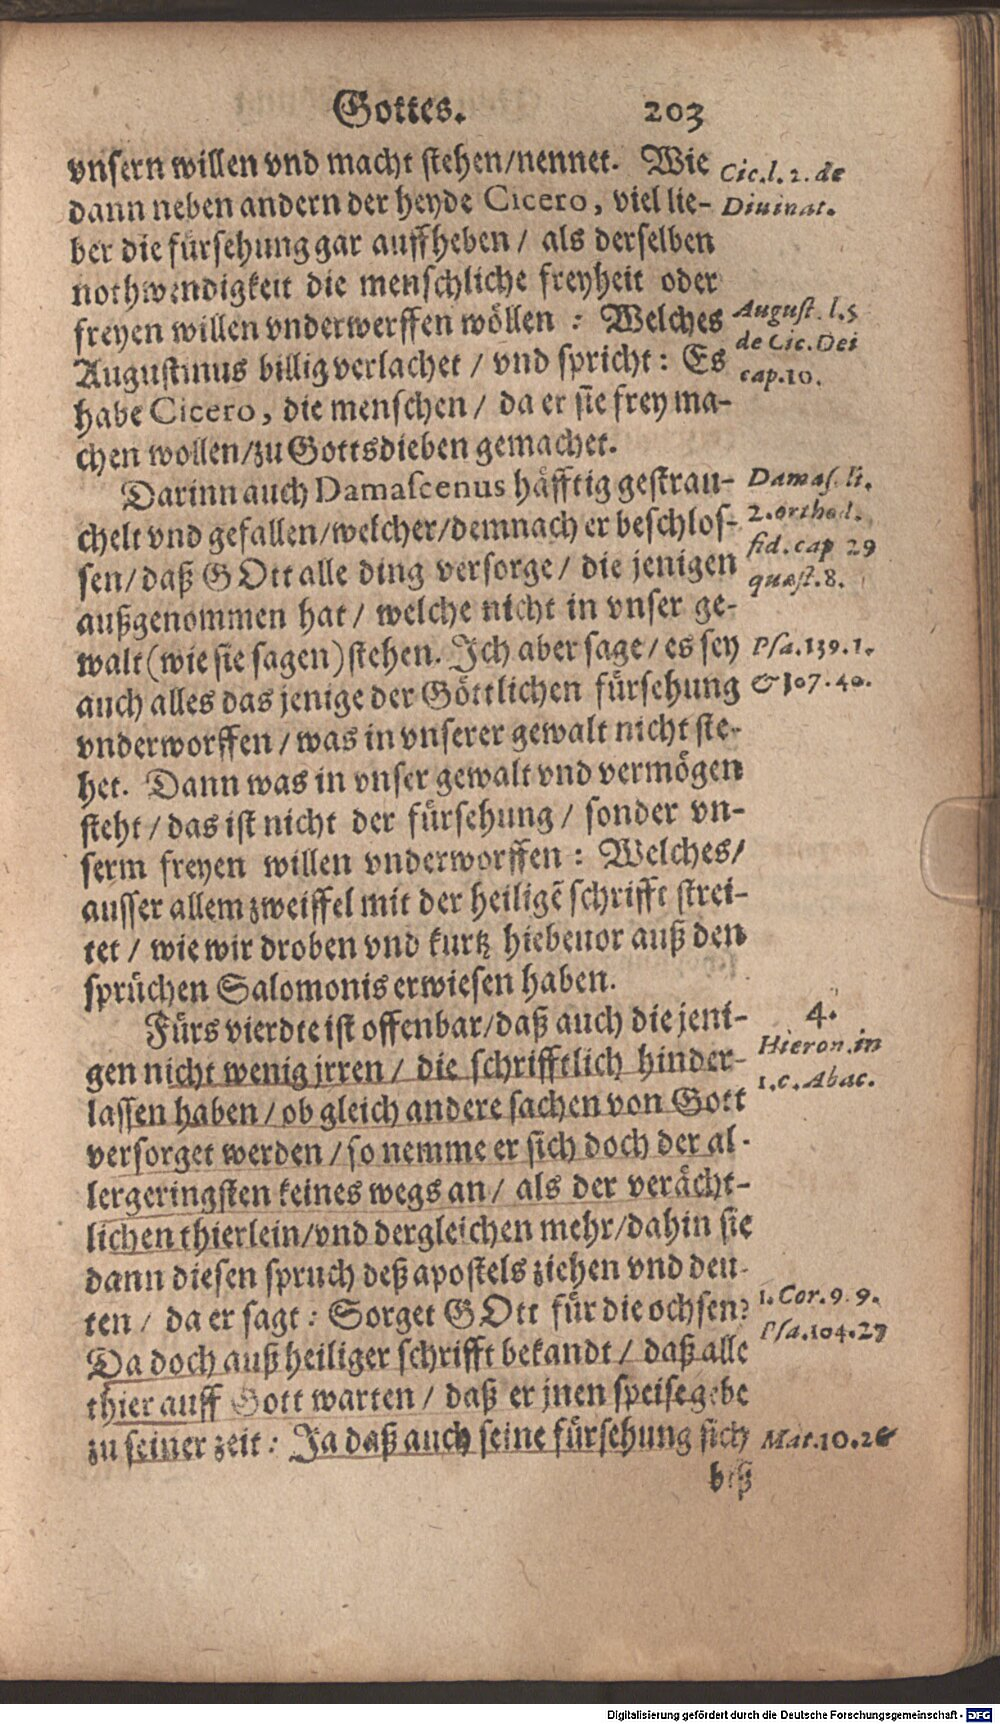 Gottes. 203
vnsern willen vnd macht stehen/nennet. Wie
dann neben andern der heyde Cicero, viel lie-
ber die fürsehung gar auffheben / als derselben
nothwendigkeit die menschliche freyheit oder
freyen willen vnderwerffen wöllen : Welches
Augustinus billig verlachet / vnd spricht : Es
habe Cicero, die menschen / da er sie frey ma-
chen wollen/zu Gottsdieben gemachet.
Cic.l.2.de
Diuinat.
August.l.5
de Cic.Dei
cap.10.
Darinn auch Damascenus häfftig gestrau-
chelt vnd gefallen/welcher/demnach er beschlos-
sen/daß GOtt alle ding versorge / die jenigen
außgenommen hat / welche nicht in vnser ge-
walt (wie sie sagen) stehen. Ich aber sage / es sey
auch alles das jenige der Göttlichen fürsehung
vnderworffen / was in vnserer gewalt nicht ste-
het. Dann was in vnser gewalt vnd vermögen
steht / das ist nicht der fürsehung / sonder vn-
serm freyen willen vnderworffen : Welches/
ausser allem zweiffel mit der heiligē schrifft strei-
tet / wie wir droben vnd kurtz hiebeuor auß den
sprüchen Salomonis erwiesen haben.
Damas.li.
2.orthod.
fid.cap 29
quæst.8.
Psa.139.1.
&107.40.
Fürs vierdte ist offenbar/daß auch die jeni-
gen nicht wenig jrren / die schrifftlich hinder-
lassen haben / ob gleich andere sachen von Gott
versorget werden / so nemme er sich doch der al-
lergeringsten keines wegs an / als der verächt-
lichen thierlein/vnd dergleichen mehr/dahin sie
dann diesen spruch deß apostels ziehen vnd deu-
ten / da er sagt : Sorget GOtt für die ochsen?
Da doch auß heiliger schrifft bekandt / daß alle
thier auff Gott warten / daß er jnen speise gebe
zu seiner zeit : Ja daß auch seine fürsehung sich
4.
Hieron.in
1.c.Abac.
1.Cor.9.9.
Psa.104.27
Mat.10.26
biß
Digitalisierung gefördert durch die Deutsche Forschungsgemeinschaft - DFG